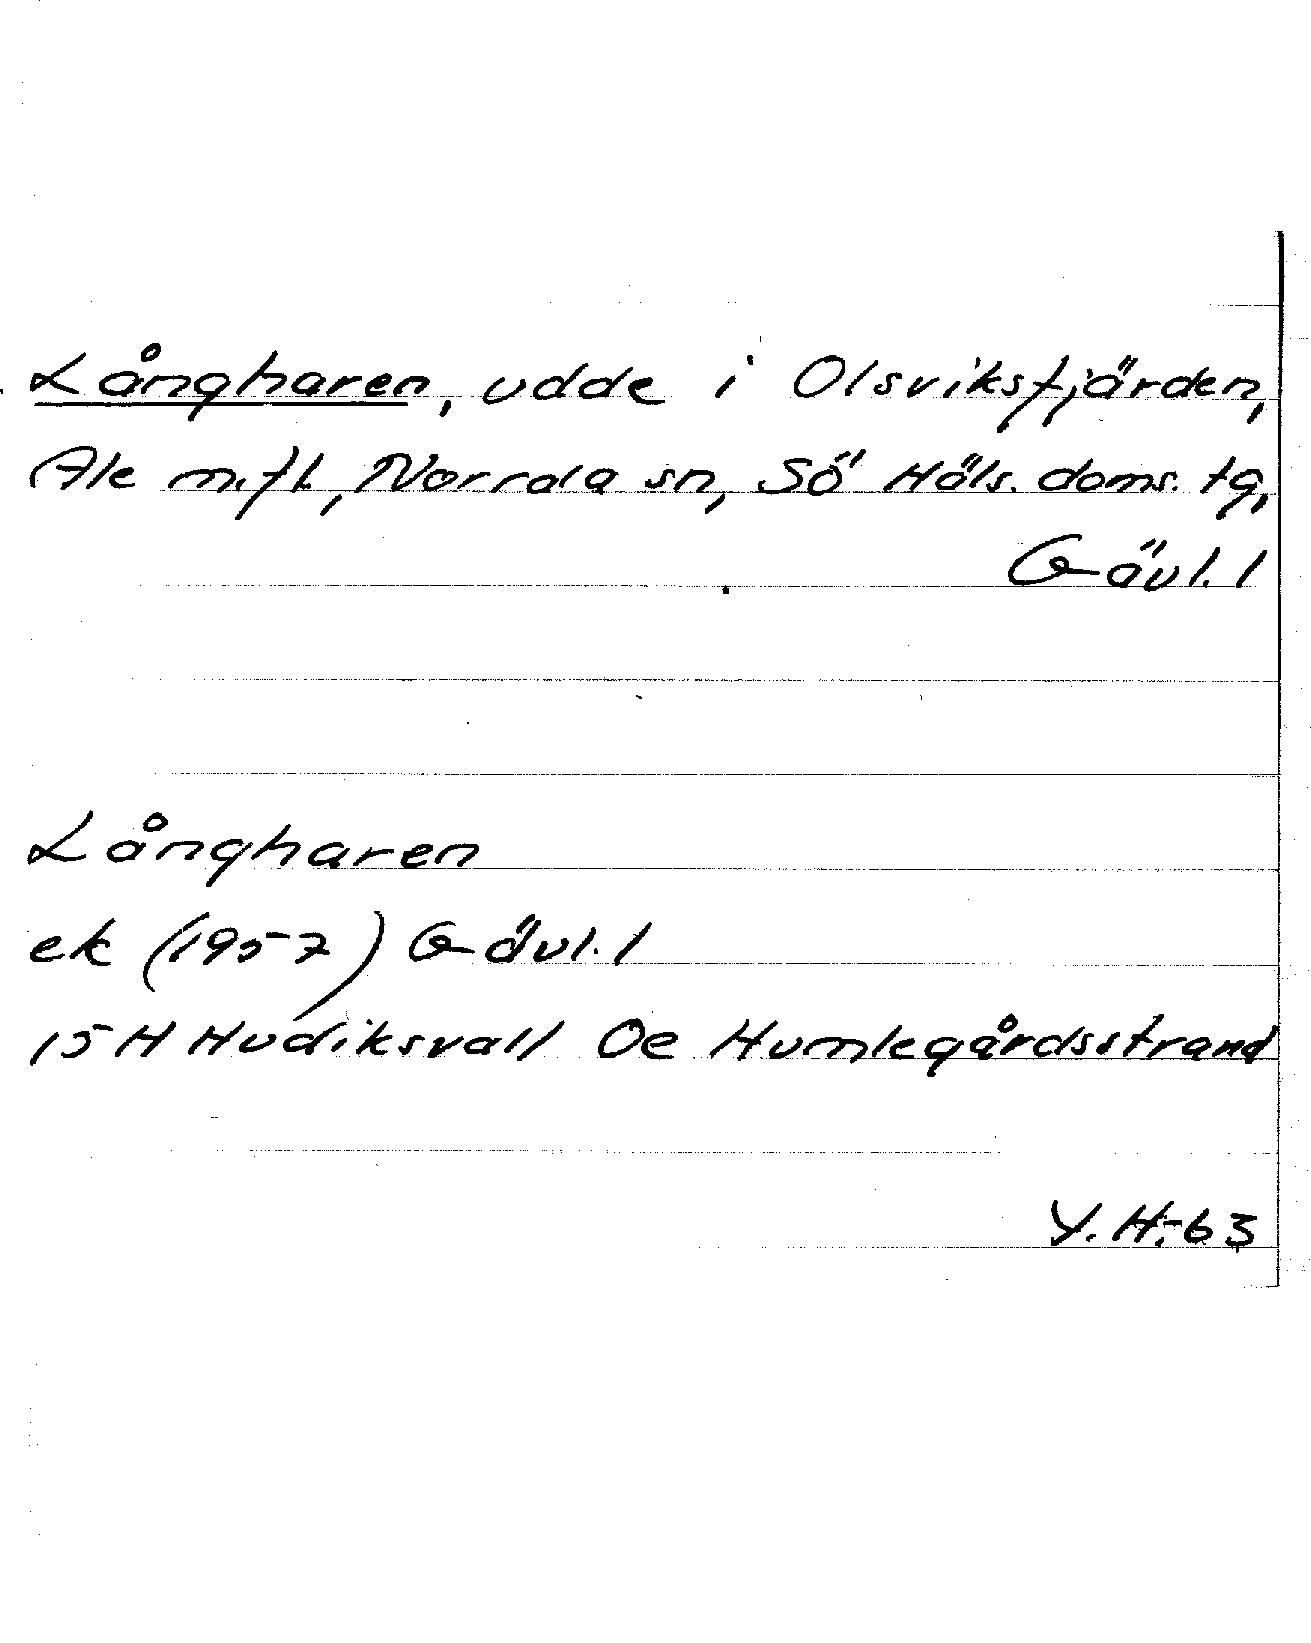 Långharen, udde i Olsviksfjärden,
Ale m.fl., Norrala sn, Sö Häls. doms. tg,
Gävl. l
Långharen
ek (1957) Gävl. l
15 H Hudiksvall Oe Humlegårdsstrand
Y.H.-63